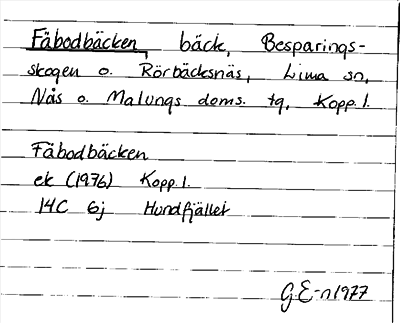 Fäbodbäcken, bäck, Besparings-
skogen o. Rörbäcksnäs, Lima sn,
Nås o. Malungs doms. tg, Kopp. l.
Fäbodbäcken
ek (1976) Kopp. l.
14C 6j Hundfjället
G.E-n 1977